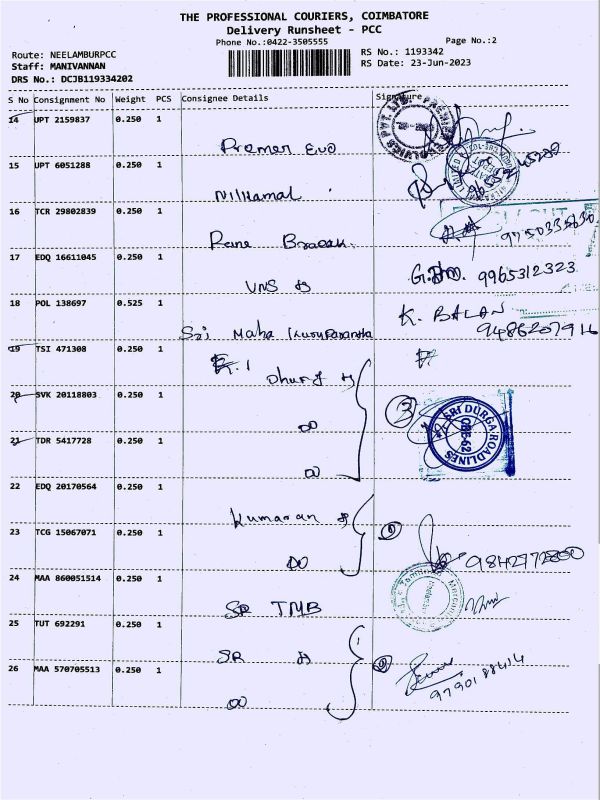 THE PROFESSIONAL COURIERS, COIMBATORE
Delivery Runsheet - PCC
Phone No.:0422-3505555 Page No.:2
Route: NEELAMBURPCC RS No.: 1193342
Staff: MANIVANNAN RS Date: 23-Jun-2023
DRS No.: DCJB119334202
S No Consignment No Weight PCS Consignee Details Signature
14 UPT 2159837 0.250 1
Premer Evo
15 UPT 6051288 0.250 1
Nilkamal
16 TCR 29802839 0.250 1
9750335630
17 EDQ 16611045 0.250 1
VNS 9965312323
18 POL 138697 0.525 1 K. BALAN
Sri Maha 9486207916
19 TSI 471308 0.250 1
20 SVK 20118803 0.250 1 3
DO SRI DURGA ROADLINES
21 TDR 5417728 0.250 1 CBE-62
DO
22 EDQ 20170564 0.250 1
Kumaran
23 TCG 15067071 0.250 1
DO 9842772800
24 MAA 860051514 0.250 1
SR TMB
25 TUT 692291 0.250 1
SR
26 MAA 570705513 0.250 1
9790188414
DO